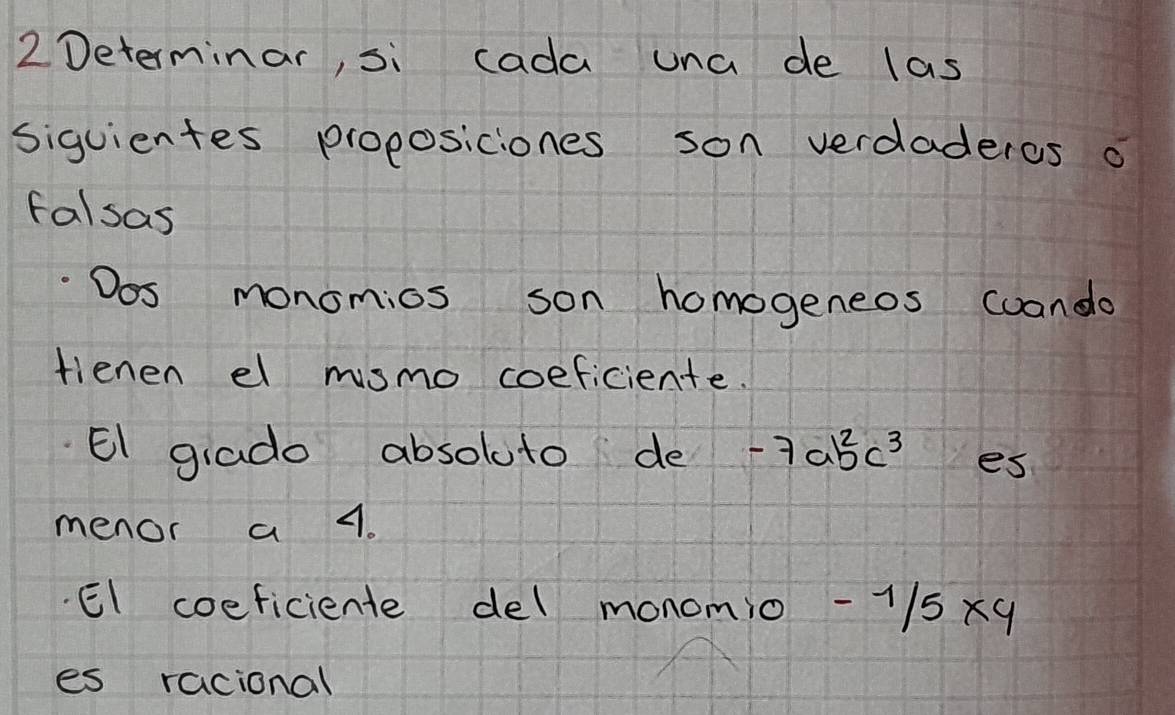 2 Determinar, si cada una de las
siguientes proposiciones son verdaderas ó
falsas
· Dos monomios son homogeneos cuando
tienen el mismo coeficiente.
· El grado absoluto de -7ab²c³ es
menor a 4.
· El coeficiente del monomio - 1/5 xy
es racional